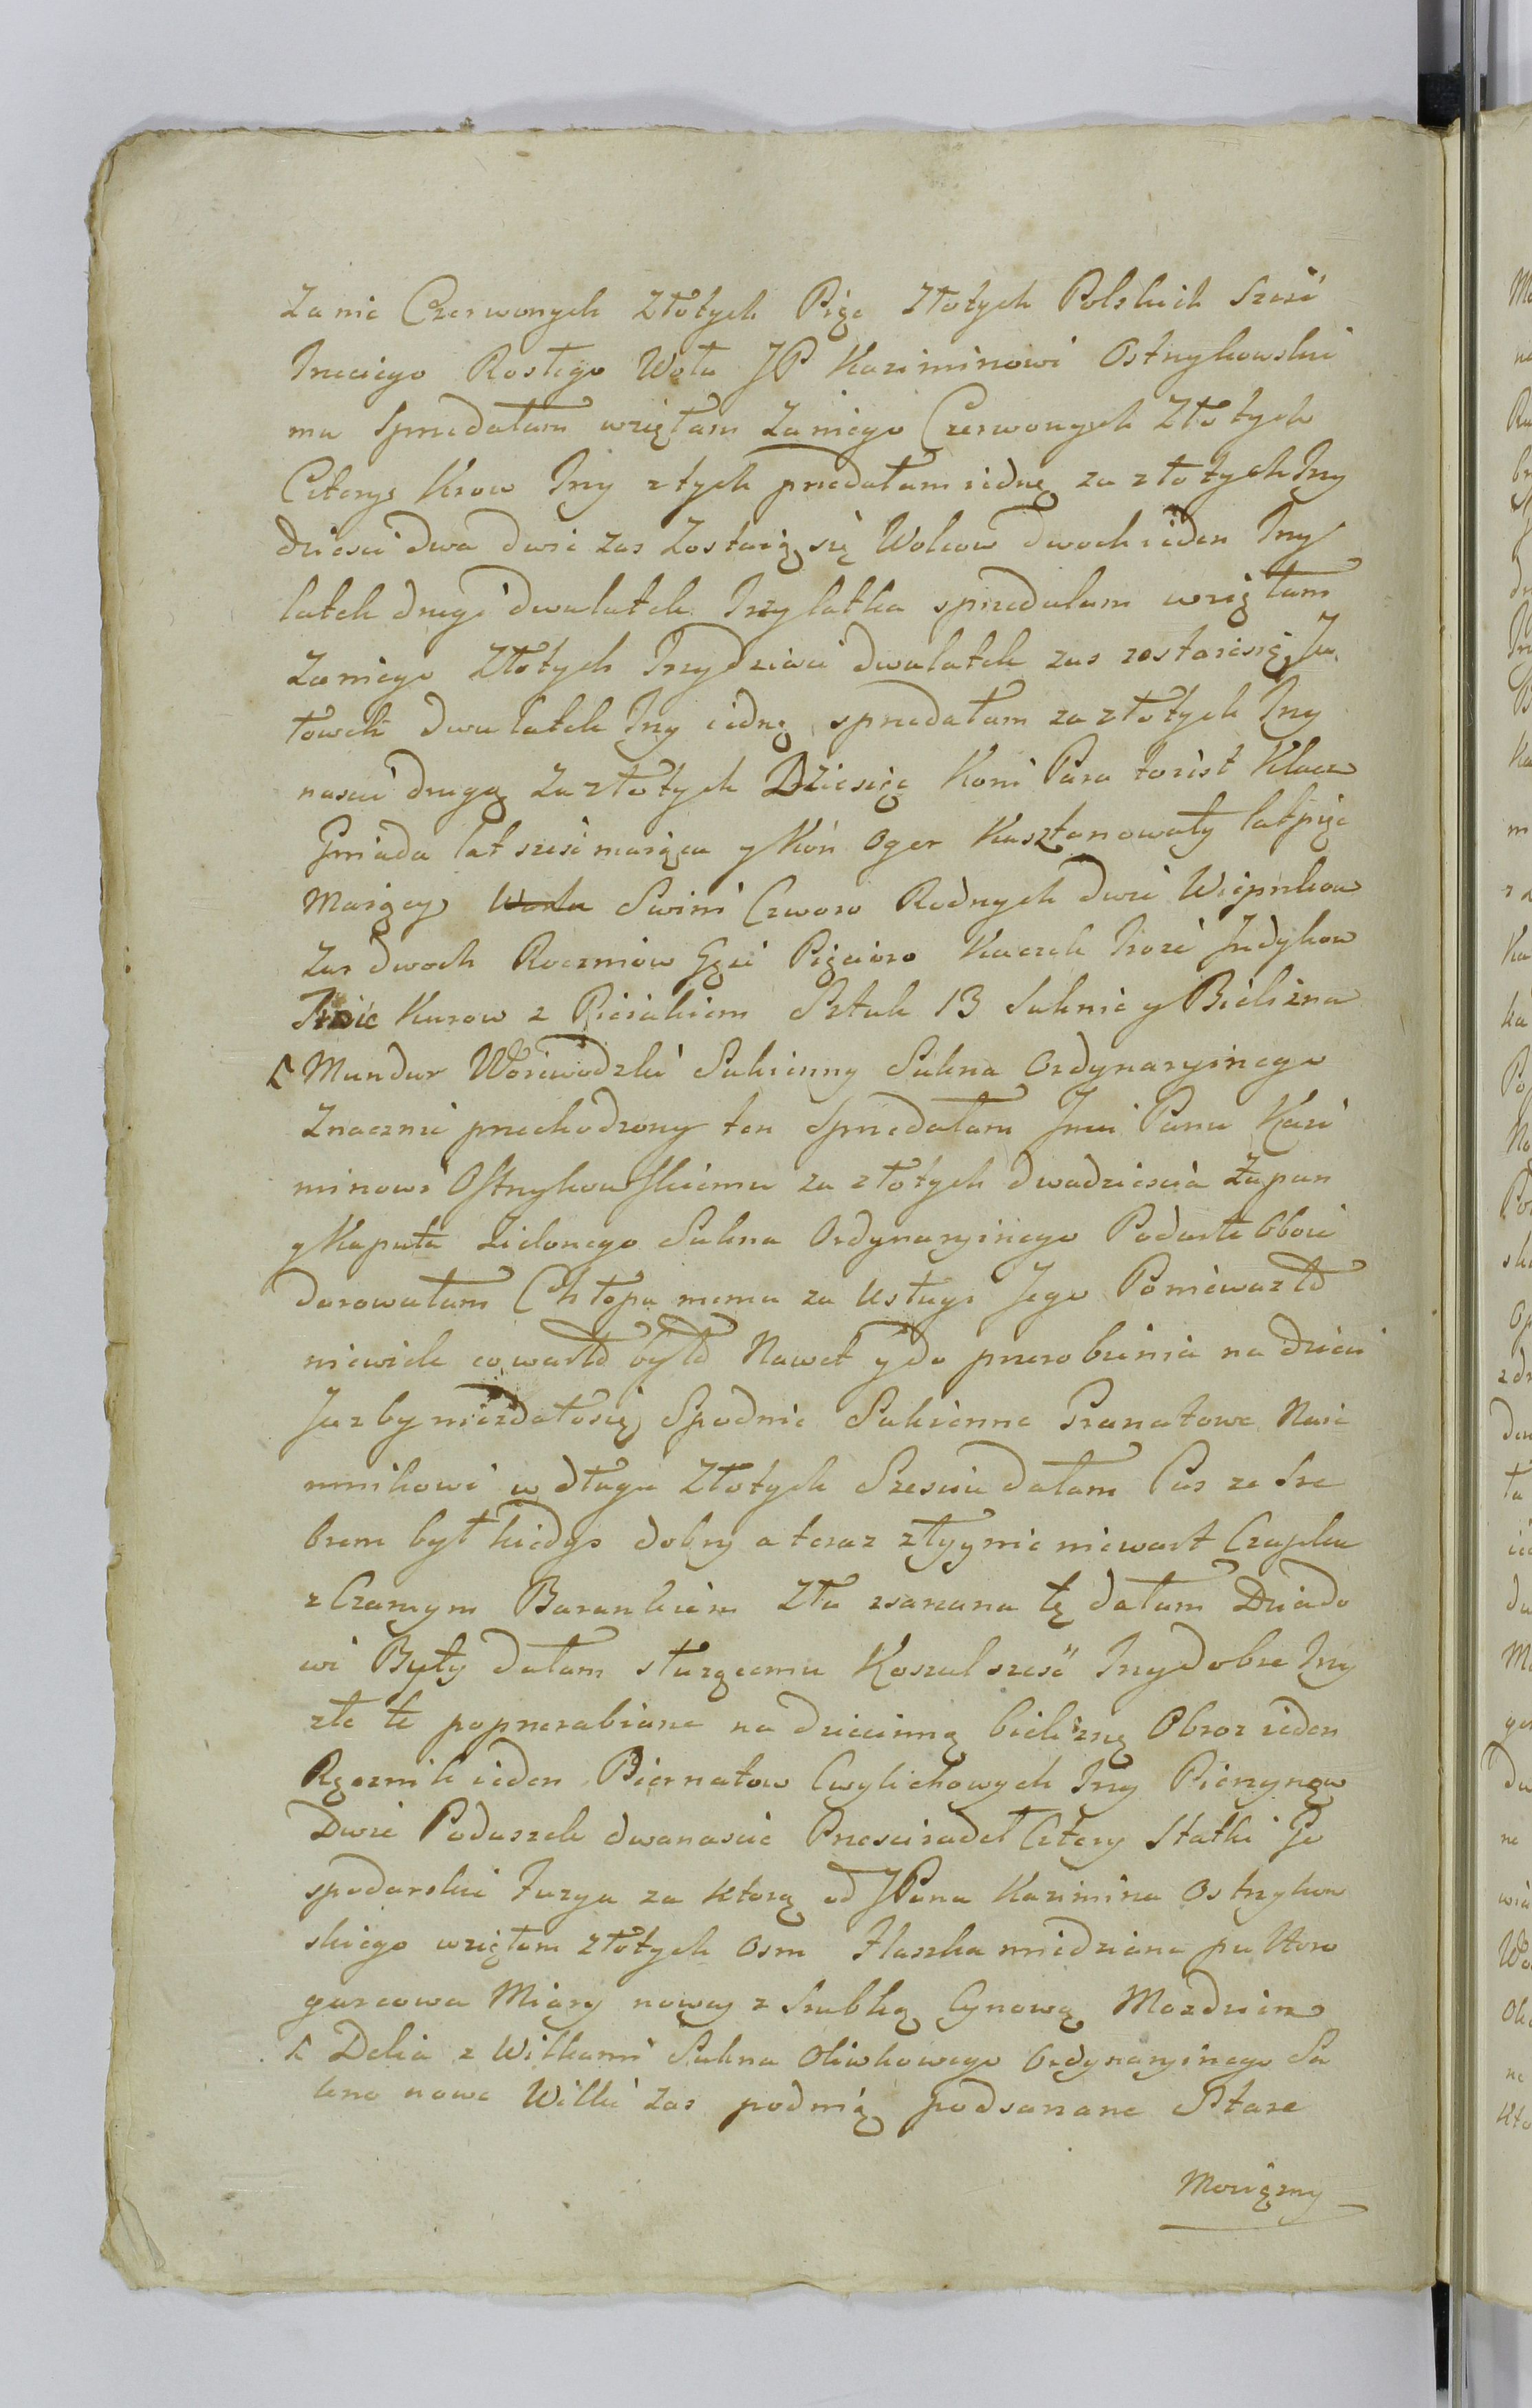 Za nie Czerwonych Złotych Pięc Złotych Polskich Szesc
Trzeciego Rosłego Wołu JP Kazimirzowi Ostrzykowski
mu sprzedałam wzięłam Zaniego Czerwonych Złotych
Cztery Krow Trzy z tych przedałam iednę za złotych Trzy
dziesci dwa dwie zas Zostaią się Wolcow dwoch ieden Trzy
latek drugi dwulatek Trzylatka sprzedałam wzięłam
Zaniego Złotych Trzydziesci dwulatek zas zostaiesię Ja
łowek dwulatek Trzy iednę sprzedałam za złotych Trzy
nascie drugą za złotych Dziesięc Koni Para to iest Klacz
Gniada lat szesc maiąca y Koń Ogier Kasztanowaty lat pięc
Maiący Swini Czworo Rodnych dwie Wieprzkow
Zas dwoch Roczniow Gęsi Pięcioro Kaczek Troie Jndykow
Troie Kurow z Pieiakiem Sztuk 13 Suknie y Bielizna
Mundur Woiewodzki Sukienny Sukna Ordynaryinego
Znacznie przechodzony ten Sprzedałam Jmci Panu Kazi
mirzowi Ostrzykowskiemu za złotych dwadziescia Żupan
y Kapota Zielonego Sukna Ordynaryinego Podarte Oboie
darowałam Chłopu memu za Usługi Jego Poniewasz to
niewiele co warto było Nawet y do przerobienia na dzieci
Juz by niezdałosię Spodnie Sukienne Granatowe Naie
mnikowi w długu Złotych Szesciu dałam Pas ze Sre
brem był kiedys dobry a teraz zły y nic niewart Czapka
z Czarnym Barankiem Zła zszarzana tę dałam Dziado
wi Byty dałam służącemu Koszul szesc Trzy dobre Trzy
złe te poprzerabiane na dziecinną bieliznę Obroz ieden
Ręcznik ieden Piernatow Cwylichowych Trzy Pierzynow
Dwie Poduszek dwanascie Przescieradeł Cztery Statki Go
spodarskie Fuzya za Ktorą od JPana Kazimirza Ostrzykow
skiego wzięłam złotych Osm Flaszka miedziana pułtora
garcowa Miary nowey z Srubką Cynową Mozdzierz
Delia z Wilkami Sukna Oliwkowego Ordynaryinego Su
kno nowe Wilki Zas podnią podszarzane Stare
Mosięzny